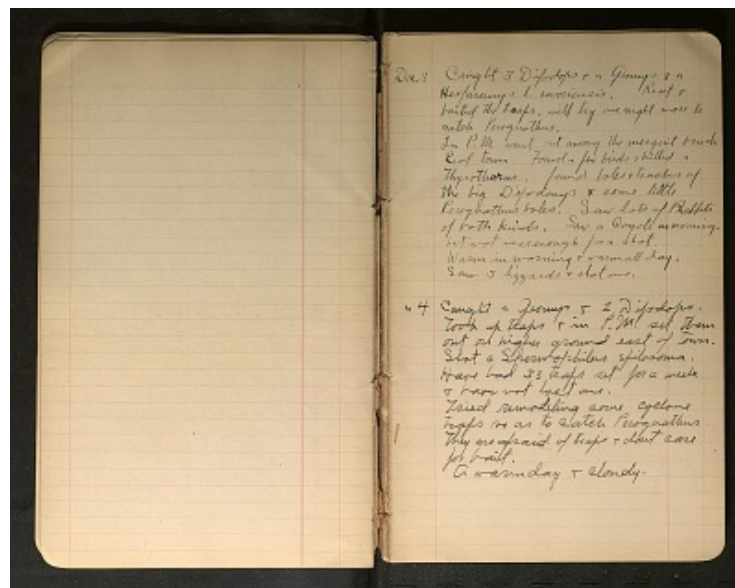 Dec. 3 Caught 3 Dipodops + a Geomys & a
Hesperomys l. sonoriensis. Reset &
baited the traps, will try one night more to
catch Perognathus.
In P.M. went out among the mesquit brush
E. of town. Found a few birds & killed a
Thryothorus. found holes & tracks of
the big Dipodomys & some little
Perognathus holes. Saw lots of Rabbits
of both kinds. Saw a Coyote in morning,
but not near enough for a shot.
Warm in morning & warm all day.
Saw 3 lizzards & shot one.
" 4 Caught a Geomys & 2 Dipodops.
Took up traps & in P.M. set them
out on higher ground east of town.
Shot a Spermophilus spilosoma.
Have had 33 traps set for a week
& have not lost one.
Tried remodeling some cyclone
traps so as to catch Perognathus.
They are afraid of traps & dont care
for bait.
A warm day & cloudy.